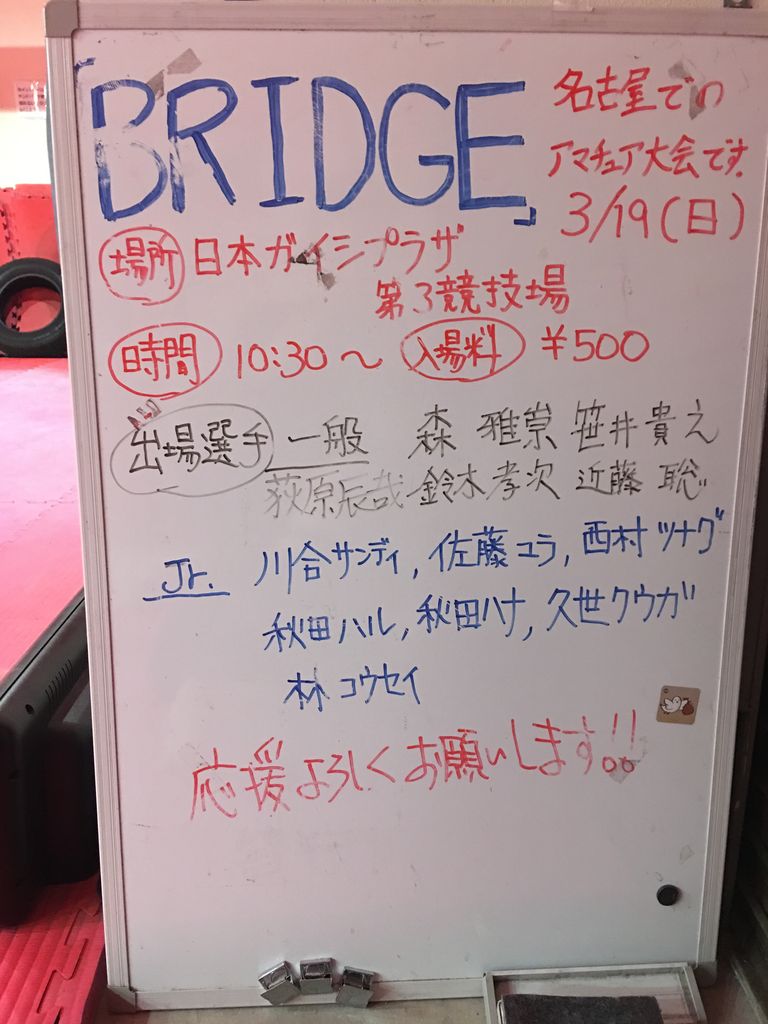 「BRIDGE」
名古屋での
アマチュア大会です。
3/19(日)
場所 日本ガイシプラザ
第3競技場
時間 10:30〜 入場料 ¥500
出場選手 一般 森 雅崇 笹井貴え
荻原辰哉 鈴木孝次 近藤 聡
Jr. 川合サンディ, 佐藤コラ, 西村ツナグ
秋田ハル, 秋田ハナ, 久世クウガ
林コウセイ
応援よろしくお願いします!!